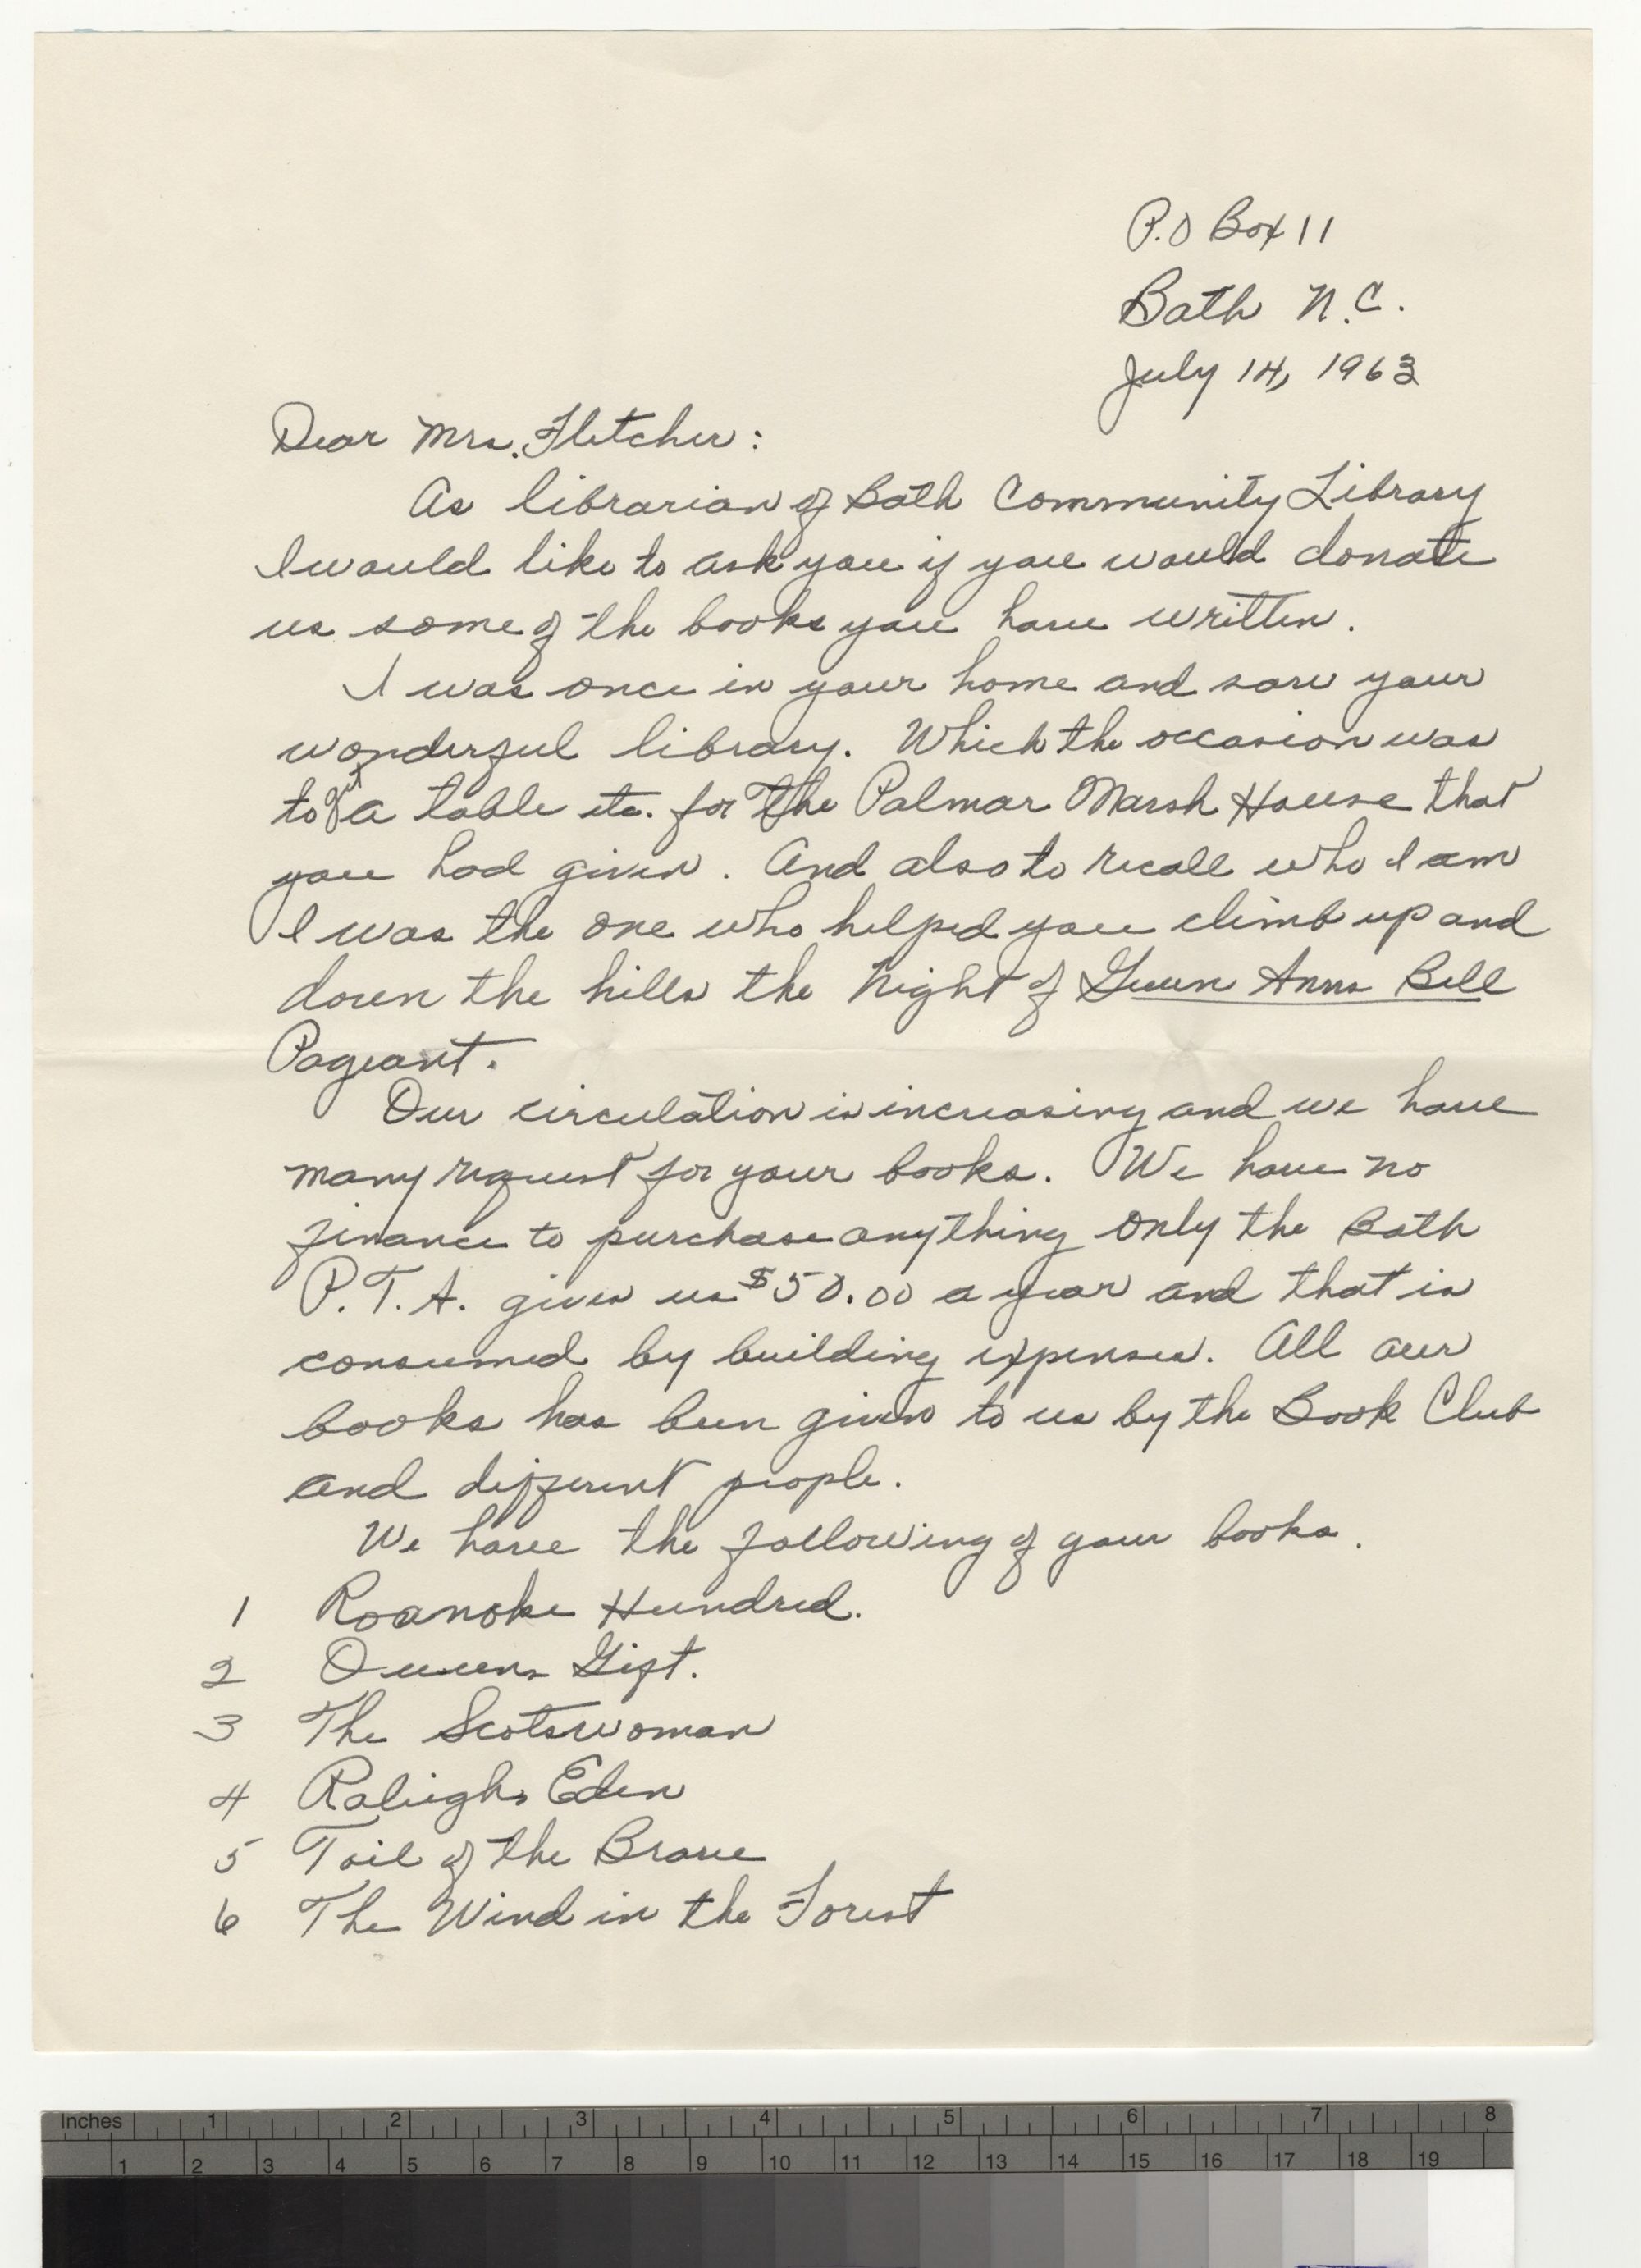 P.O Box 11
Bath N.C.
July 14, 1963
Dear Mrs. Fletcher:
As librarian of Bath Community Library
I would like to ask you if you would donate
us some of the books you have written.
I was once in your home and saw your
wonderful library. Which the occasion was
to get a table etc. for the Palmar Marsh House that
you had given. And also to recall who I am
I was the one who helped you climb up and
down the hills the night of Queen Anns Bell
Pageant.
Our circulation is increasing and we have
many request for your books. We have no
finance to purchase anything only the Bath
P.T.A. gives us $50.00 a year and that is
consumed by building expenses. All our
books has been given to us by the Book Club
and different people.
We have the following of your books.
1 Roanoke Hundred.
2 Queens Gift.
3 The Scotswoman
4 Raleighs Eden
5 Toil of the Brave
6 The Wind in the Forest
Inches 1 2 3 4 5 6 7 8
1 2 3 4 5 6 7 8 9 10 11 12 13 14 15 16 17 18 19